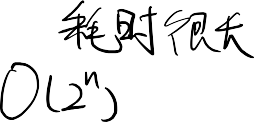 耗时很长
O(2ⁿ)